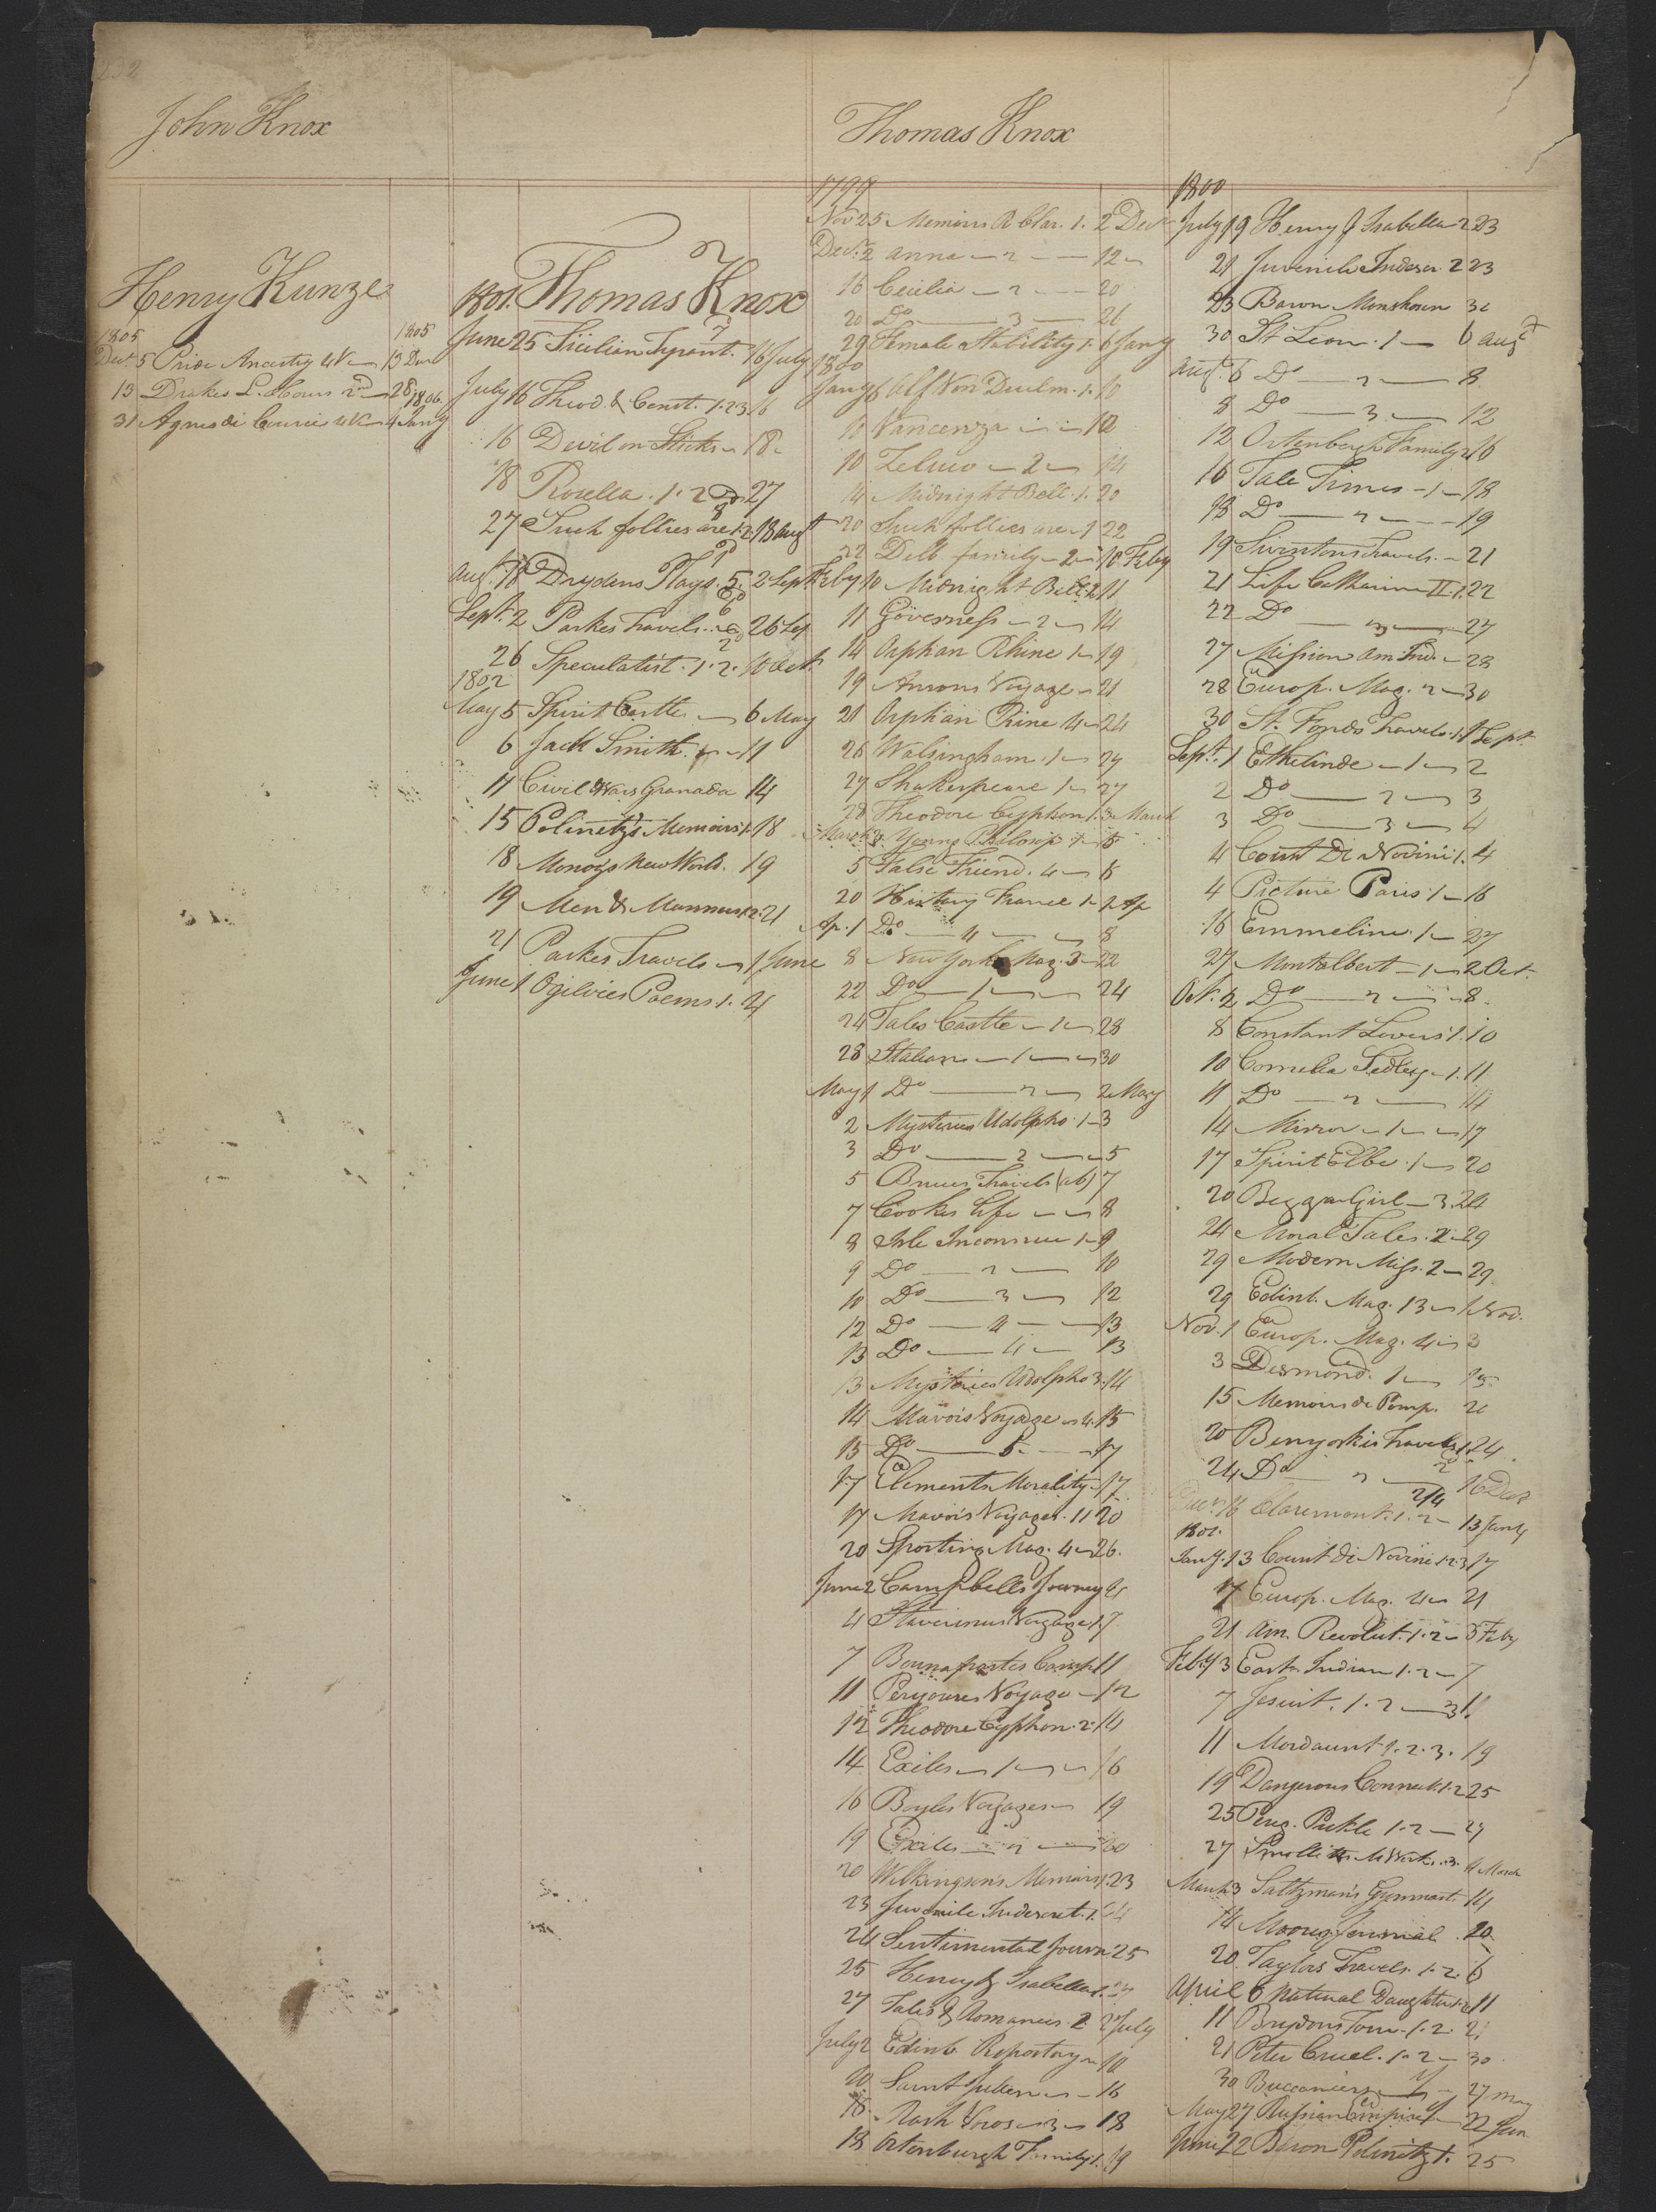 232
John Knox
Henry Kunze
1805 1805
Dec 5 Pride Ancestry 4V 13 Dec
13 Drakes L. Hours 2nd 28 1806
31 Agnes di 4V 4 Jany
1801. Thomas Knox
June 25 Sicilian Tyrant. 16 July
July 16 Theod. & Const. 1.2.3 16
16 Devil on Sticks 18
18 Rosella. 1.2 27
27 Such follies are 1.2. 18 Augt
Augt. 18 Drydens Plays. 5. 2 Sept
Sept. 2 Parkes Travels 26 Sep
26 Speculatist. 1.2. 10 Oct
1802
May 5 Spirit Castle 6 May
6 Jack Smith. 11
11 Civil Wars Granada 14
15 Polinetz's Memoirs 1. 18
18 New World. 19
19 Men & Manners 1.2. 21
21 Parkes Travels 1 June
June 1 Ogilvies Poems. 1. 4
Thomas Knox
1799
Nov 25 Memoirs R Clar. 1. 2 Dec
Dec. 2 Anna 2 12
16 Cecilia 2 20
20 Do 3 21
29 Female Stability 1. 6 Jany
1800
Jany 6 Alf Von Deulm. 1. 10
10 Vancenza 10
10 Zeluco 2 14
14 Midnight Bell. 1. 20
20 Such follies are 1 22
22 Delb. family 2 10 Feby
Feby 10 Midnight Bell 2 11
11 Governess 2 14
14 Orphan Rhine 1 19
19 Ansons Voyage 21
21 Orphan Rine 4 24
26 Walsingham. 1 27
27 Shakespeare 1 27
28 Theodore Cyphon 1. 3 March
March 3 Young Philosop 1 5
5 False Friend. 4 6
20 History France 1 1 Ap
Ap. 1 Do 4 8
8 New York Mag. 3 22
22 Do 1 24
24 Tales Castle 1 28
28 Italian 1 30
May 1 Do 2 2 May
2 Mysteries Udolpho 1 3
3 Do 2 5
5 Bruces Travels (ab) 7
7 Cookes Life 8
8 Isle Inconnue 1 9
9 Do 2 10
10 Do 3 12
12 Do 4 13
13 Do 4 13
13 Mysteries Udolpho 3. 14
14 Mavors Voyage 4. 15
15 Do 5 17
17 Elements Morality 17
17 Mavors Voyages. 11 20
20 Sporting Mag. 4 26.
June 2 Campbells Journey 4
4 Stavorinus Voyage 1. 7
7 Bounapartes Camp 11
11 Voyage 12
12 Theodore Cyphon. 2. 14
14 Exiles 1 16
16 Boyles Voyages 19
19 Exiles 2 20
20 Wilkingsons Memoirs 1. 23
23 Juvenile Indescret. 1. 24
24 Sentimental Journ 25
25 Henry & Isabella 1. 27
27 Tales & Romances 2 2 July
July 2 Edinb Repository 10
10 Saint Julien 16
16 Nash Socs 3 18
18 Ortenburgh Family 1. 19
1800
July 19 Henry & Isabella 2 23
21 Juvenile Indescr. 2 23
23 Baron Munshosen 30
30 St Leon. 1 6 Augt
Augt. 6 Do 2 8
8 Do 3 12
12 Ortenbergh Family 2 16
16 Tale Times 1 18
18 Do 2 19
19 Swintons Travels 21
21 Life Catharine II. 1. 22
22 Do 3 27
27 Mission Am Ind. 28
28 Europ. Mag. 2 30
30 St. Fonds Travels. 1. 1 Sept.
Sept. 1 Ethelinde 1 2
2 Do 2 3
3 Do 3 4
4 Count De Novini 1. 4
4 Picture Paris. 1 16
16 Emmeline. 1 27
27 Montalbert 1 2 Oct.
Oct. 2 Do 2 8
8 Constant Lovers 1. 10
10 Cornelia Sedley 1. 11
11 Do 2 14
14 Mirror 1 17
17 Spirit Elbe. 1 20
20 Beggar Girl 3. 24
24 Moral Tales. 2 29
29 Modern Miss. 2 29
29 Edinb. Mag. 13 1 Nov.
Nov. 1 Europ. Mag. 4 3
3 Desmond. 1 15
15 Memoirs de Pomp. 20
20 Benyoskis Travels 1. 24
24 Do 2 16 Decr
Decr. 16 Claremont. 1.2 2/4 13 Jany
1801.
Jany. 13 Count di Novini 1.2.3 17
17 Europ. Mag. 4 21
21 Am. Revolut. 1.2 3 Feby
Feby 3 East Indian 1.2 7
7 Jesuit. 1.2 3 11
11 Mordaunt 1.2.3. 19
19 Dangerous Connect. 1.2 25
25 Pereg. Pickle 1.2 27
27 Smolletts M Works 3. 4 March
March 3 Saltzman's Gymnast. 14
14 Moores Journal 20
20 Taylors Travels. 1.2. 6
April 6 Natural Daughter 1.2 11
11 Brydons Tour. 1.2. 21
21 Peter Cruel. 1.2 30
30 Buccaniers 27 May
May 27 Russian Empire 22 Jun
June 22 Baron Polinitz 1. 25